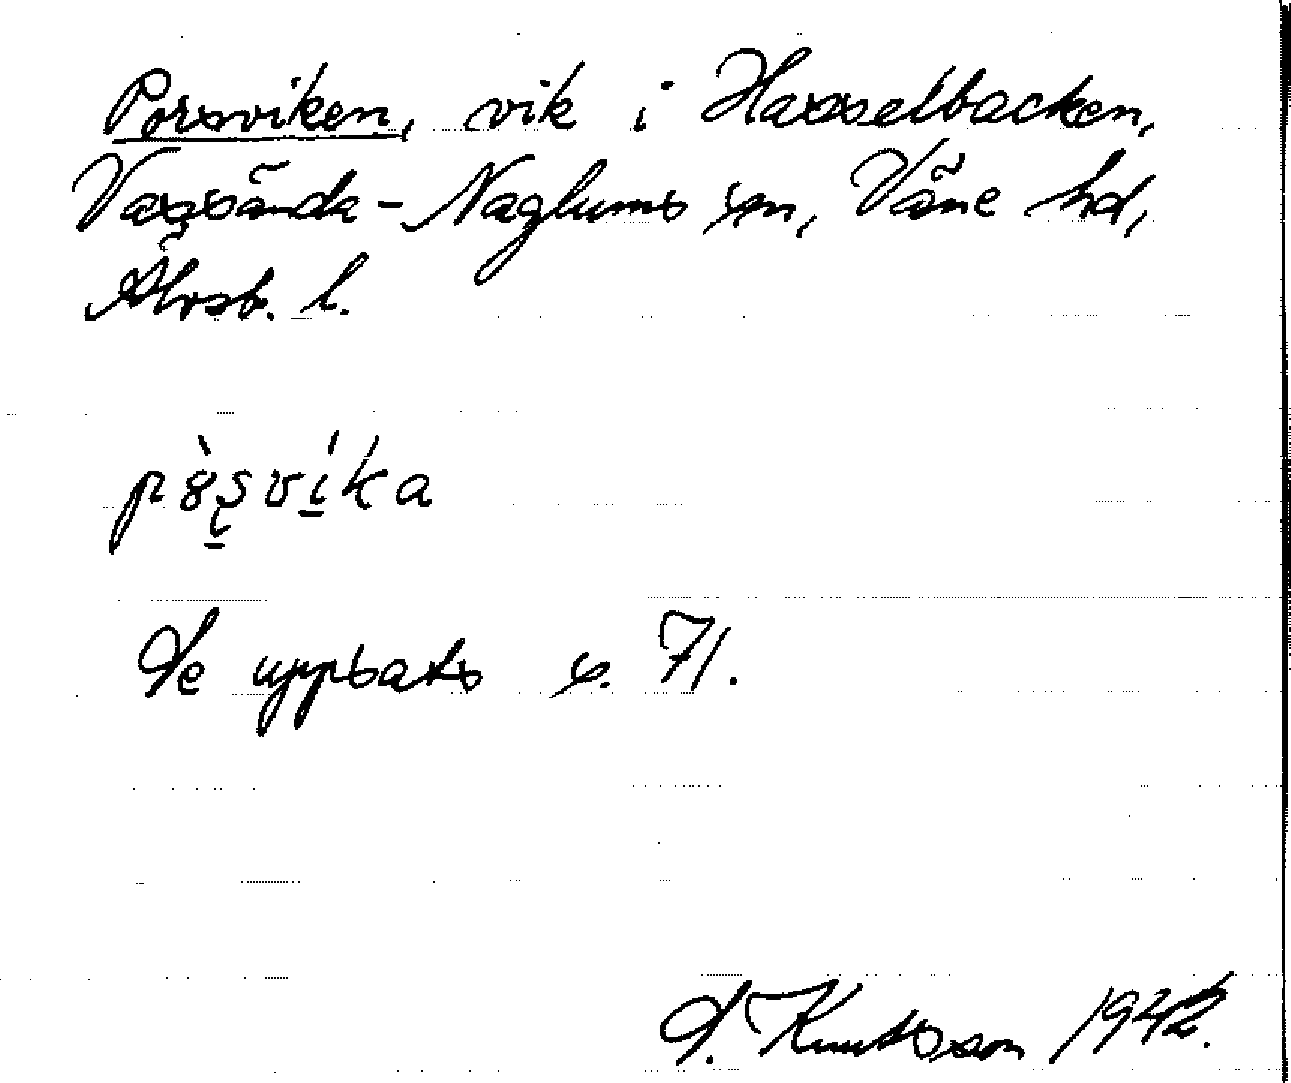 Porsviken, vik i Hasselbacken,
Vassända-Naglums sn, Väne hd,
Älvsb. l.
Se uppsats s. 71.
S. Knutsson 1942.